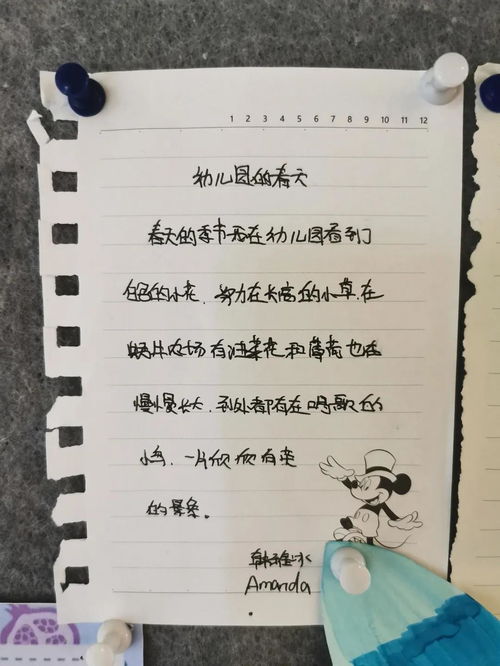 1 2 3 4 5 6 7 8 9 10 11 12
幼儿园的春天
春天的季节我在幼儿园看到了
白色的小花、努力在长高的小草.在
蜗牛农场有油菜花和薄荷也在
慢慢长大.到处都有在唱歌的
小鸟.一片欣欣向荣
的景象。
韩雅冰
Amanda